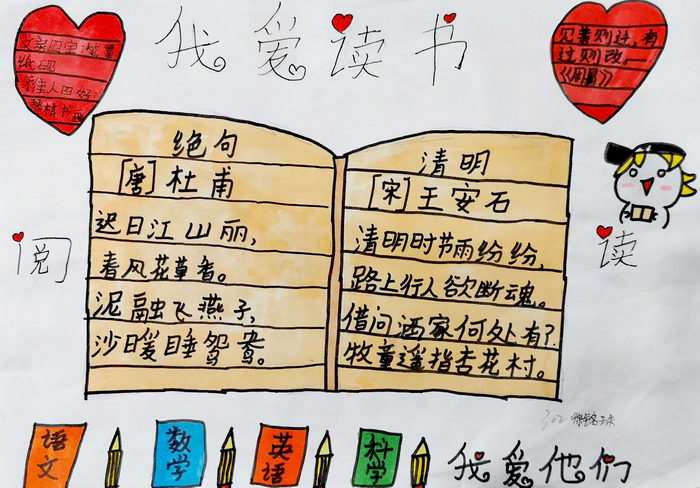 我爱读书
四宝
纸砚
佳人四好
琴棋书画
见善则迁,有
过则改,
《周易》
绝句
[唐]杜甫
迟日江山丽,
春风花草香。
泥融飞燕子,
沙暖睡鸳鸯。
清明
[宋]王安石
清明时节雨纷纷,
路上行人欲断魂。
借问酒家何处有?
牧童遥指杏花村。
阅
读
302
语文
数学
英语
科学
我爱他们